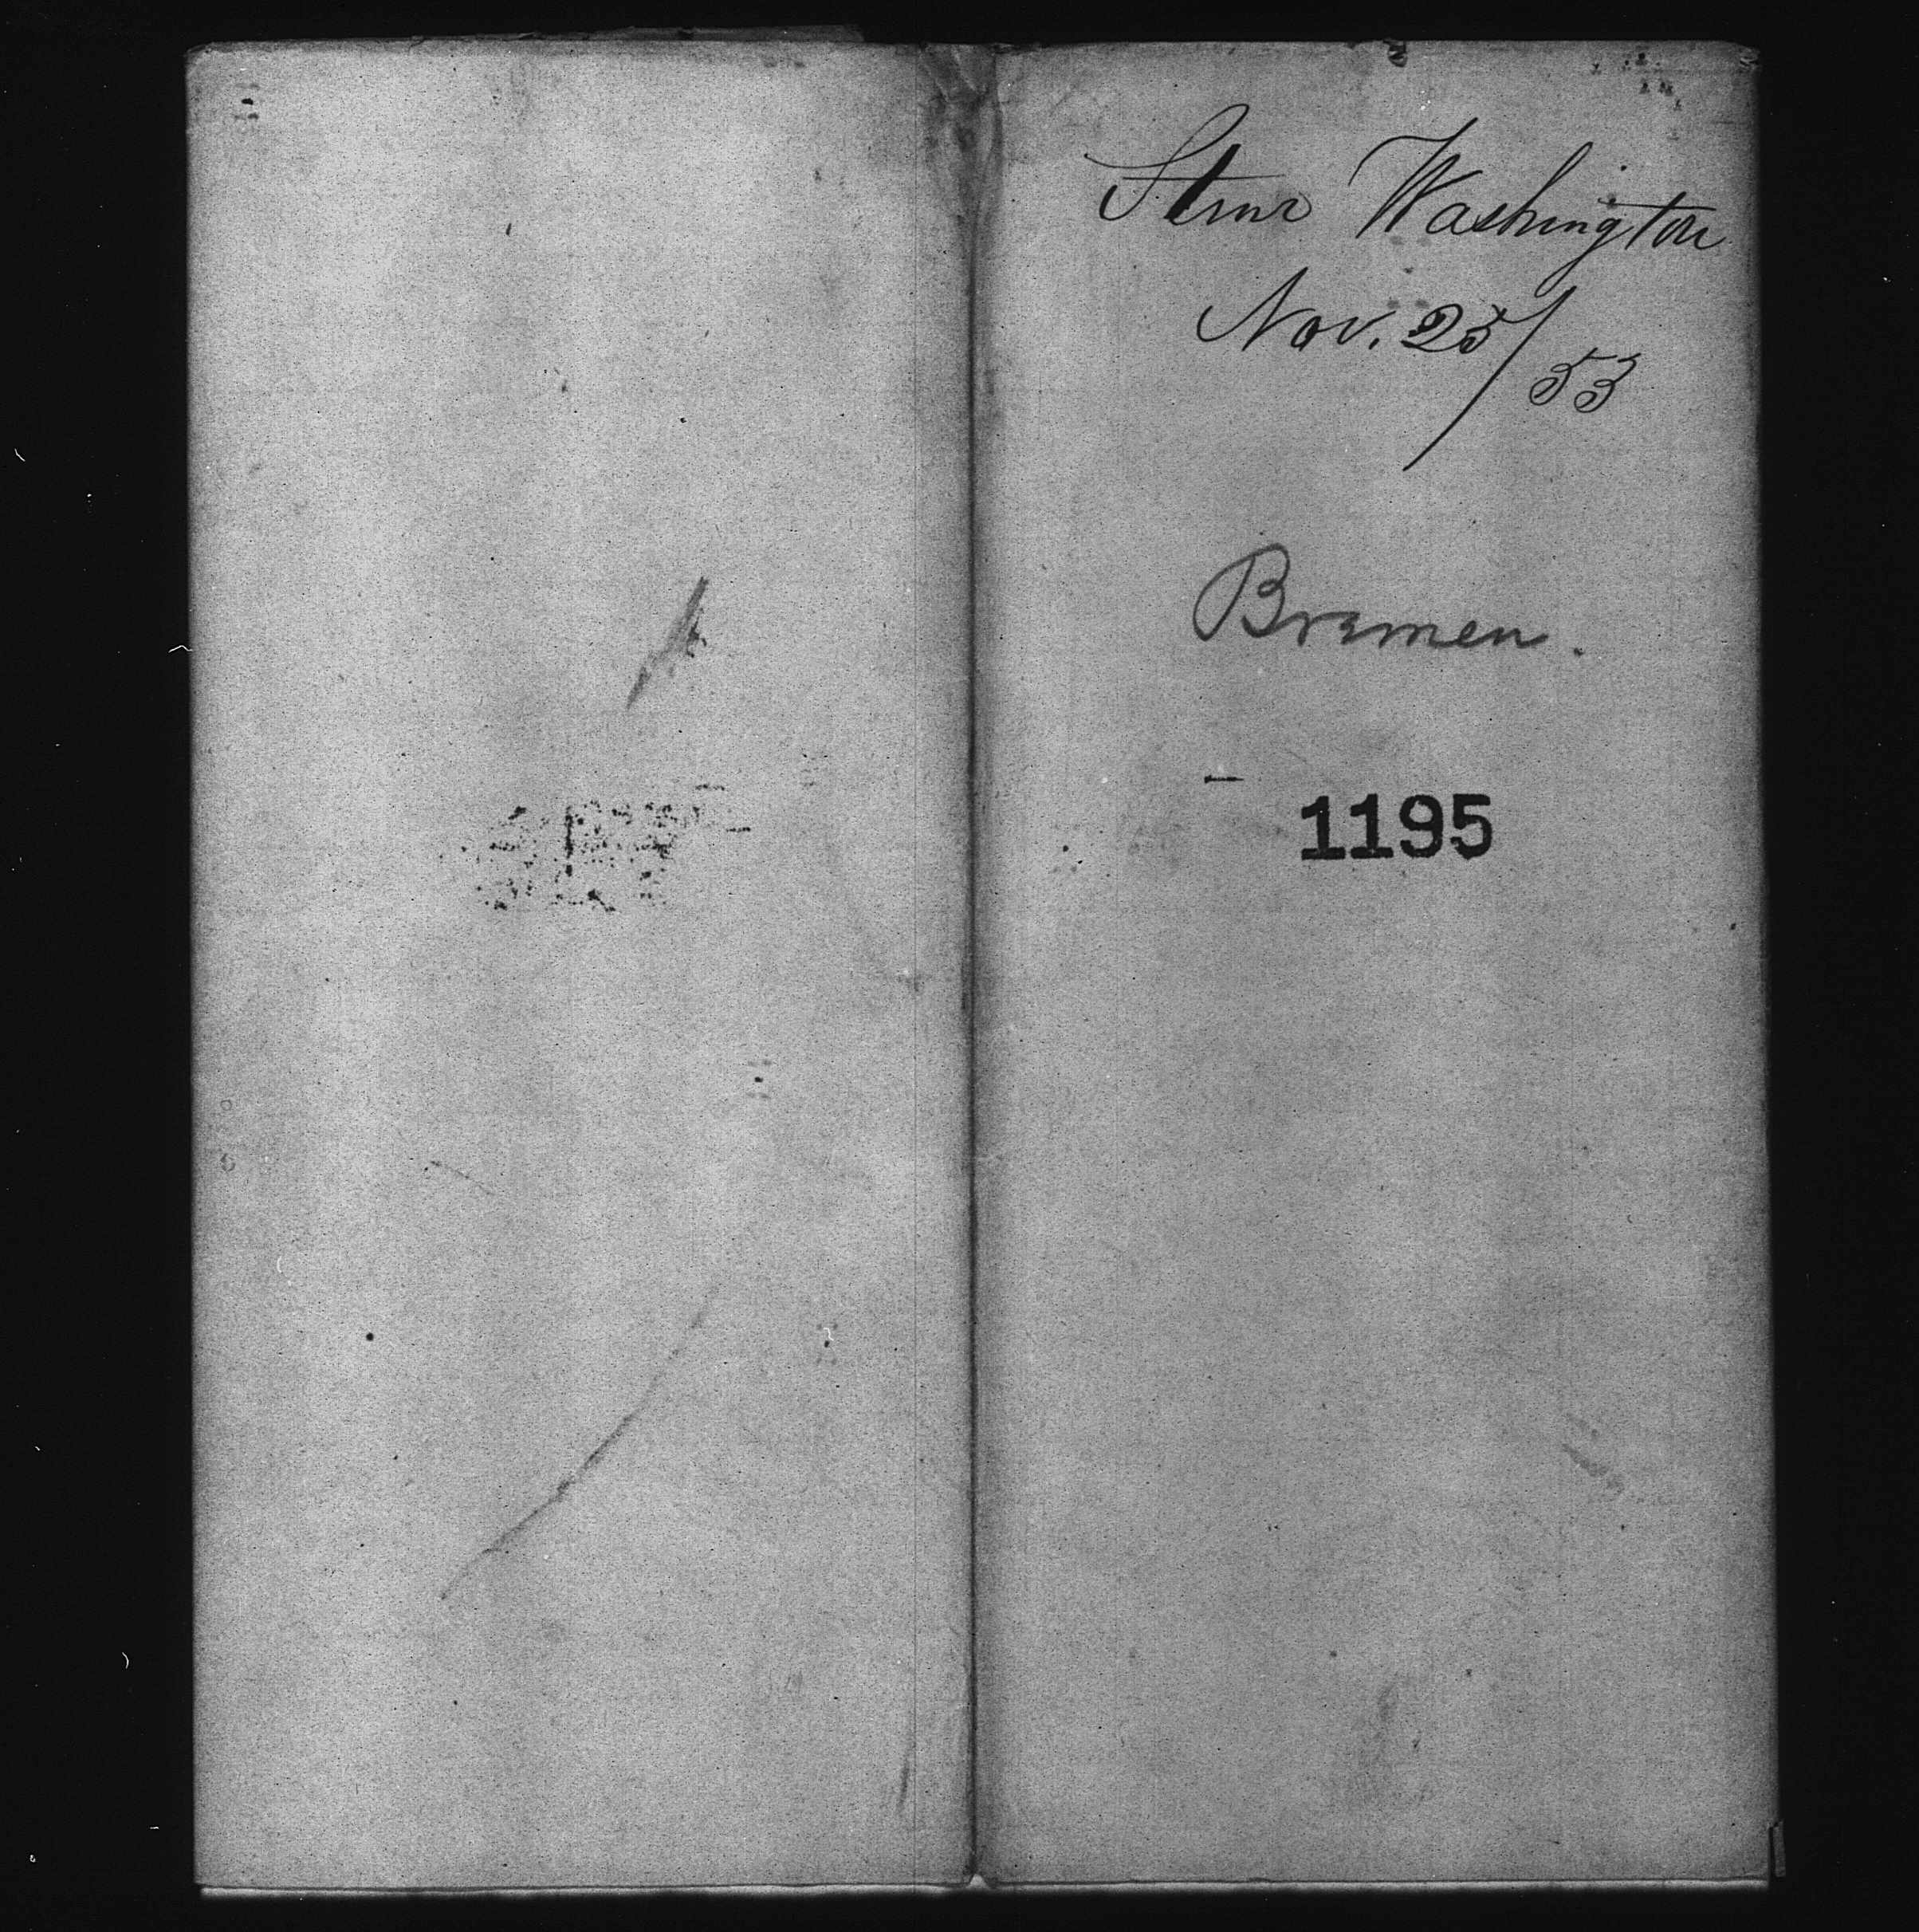 Stmr Washington
Nov. 25/53
Bremen.
1195